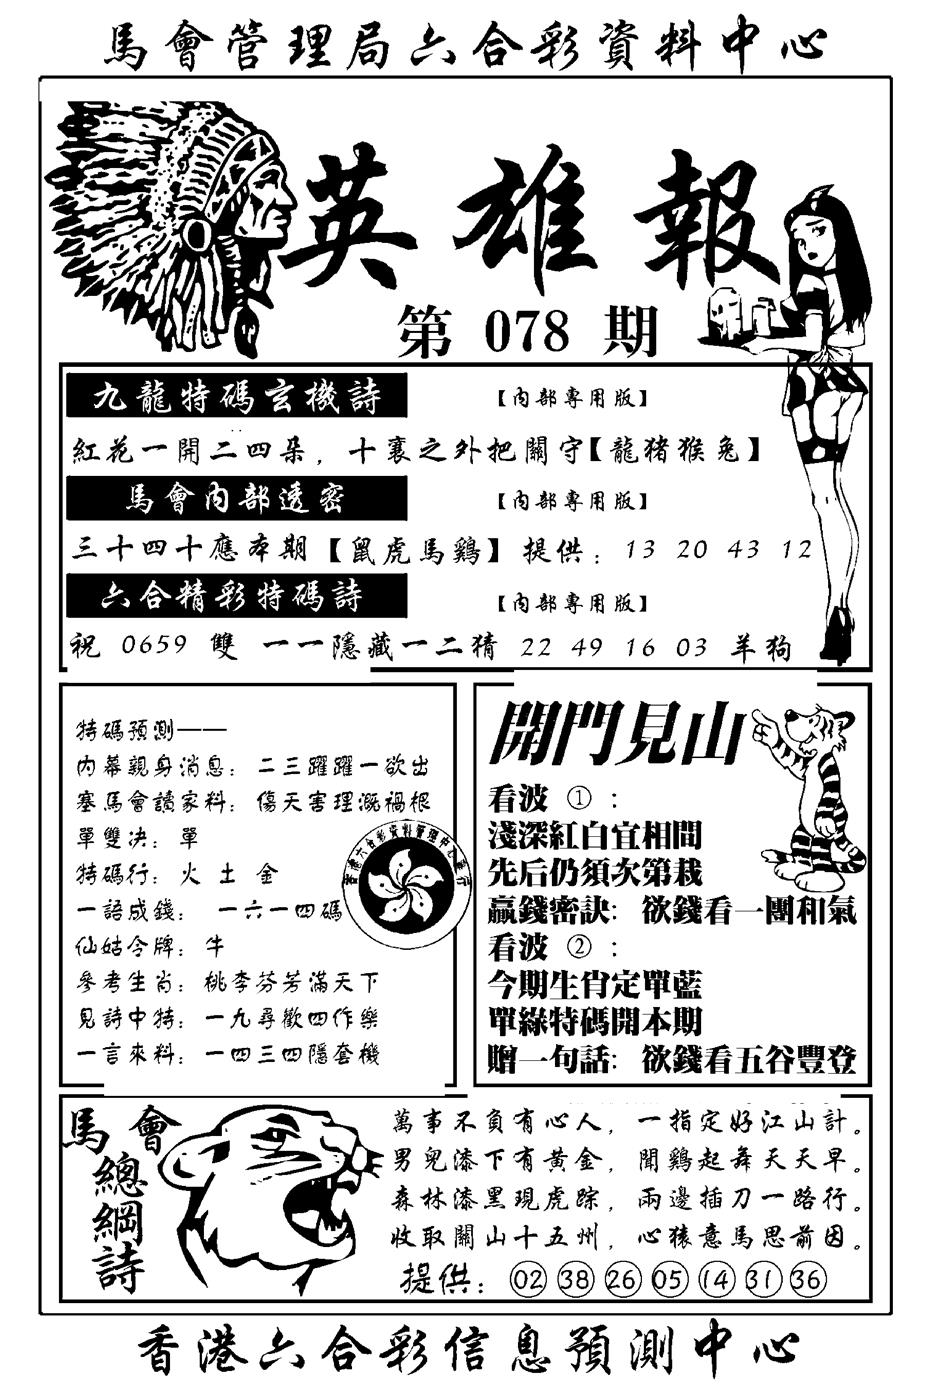 馬會管理局六合彩資料中心
英雄報
第 078 期
九龍特碼玄機詩 【內部專用版】
紅花一開二四朵，十裏之外把關守【龍猪猴兔】
馬會內部透密 【內部專用版】
三十四十應本期【鼠虎馬鷄】提供：13 20 43 12
六合精彩特碼詩 【內部專用版】
祝 0659 雙 一一隱藏一二猜 22 49 16 03 羊狗
特碼預測——
內幕親身消息：二三躍躍一欲出
塞馬會讀家料：傷天害理溉禍根
單雙决：單
特碼行：火 土 金
一語成錢：一六一四碼
仙姑令牌：牛
參考生肖：桃李芬芳滿天下
見詩中特：一九尋歡四作樂
一言來料：一四三四隱套機
香港六合彩資料管理中心發行
開門見山
看波 ①：
淺深紅白宜相間
先后仍須次第栽
贏錢密訣：欲錢看一團和氣
看波 ②：
今期生肖定單藍
單綠特碼開本期
贈一句話：欲錢看五谷豐登
馬會
總綱詩
萬事不負有心人，一指定好江山計。
男兒漆下有黄金，聞鷄起舞天天早。
森林漆黑現虎踪，兩邊插刀一路行。
收取關山十五州，心猿意馬思前因。
提供：02 38 26 05 14 31 36
香港六合彩信息預測中心